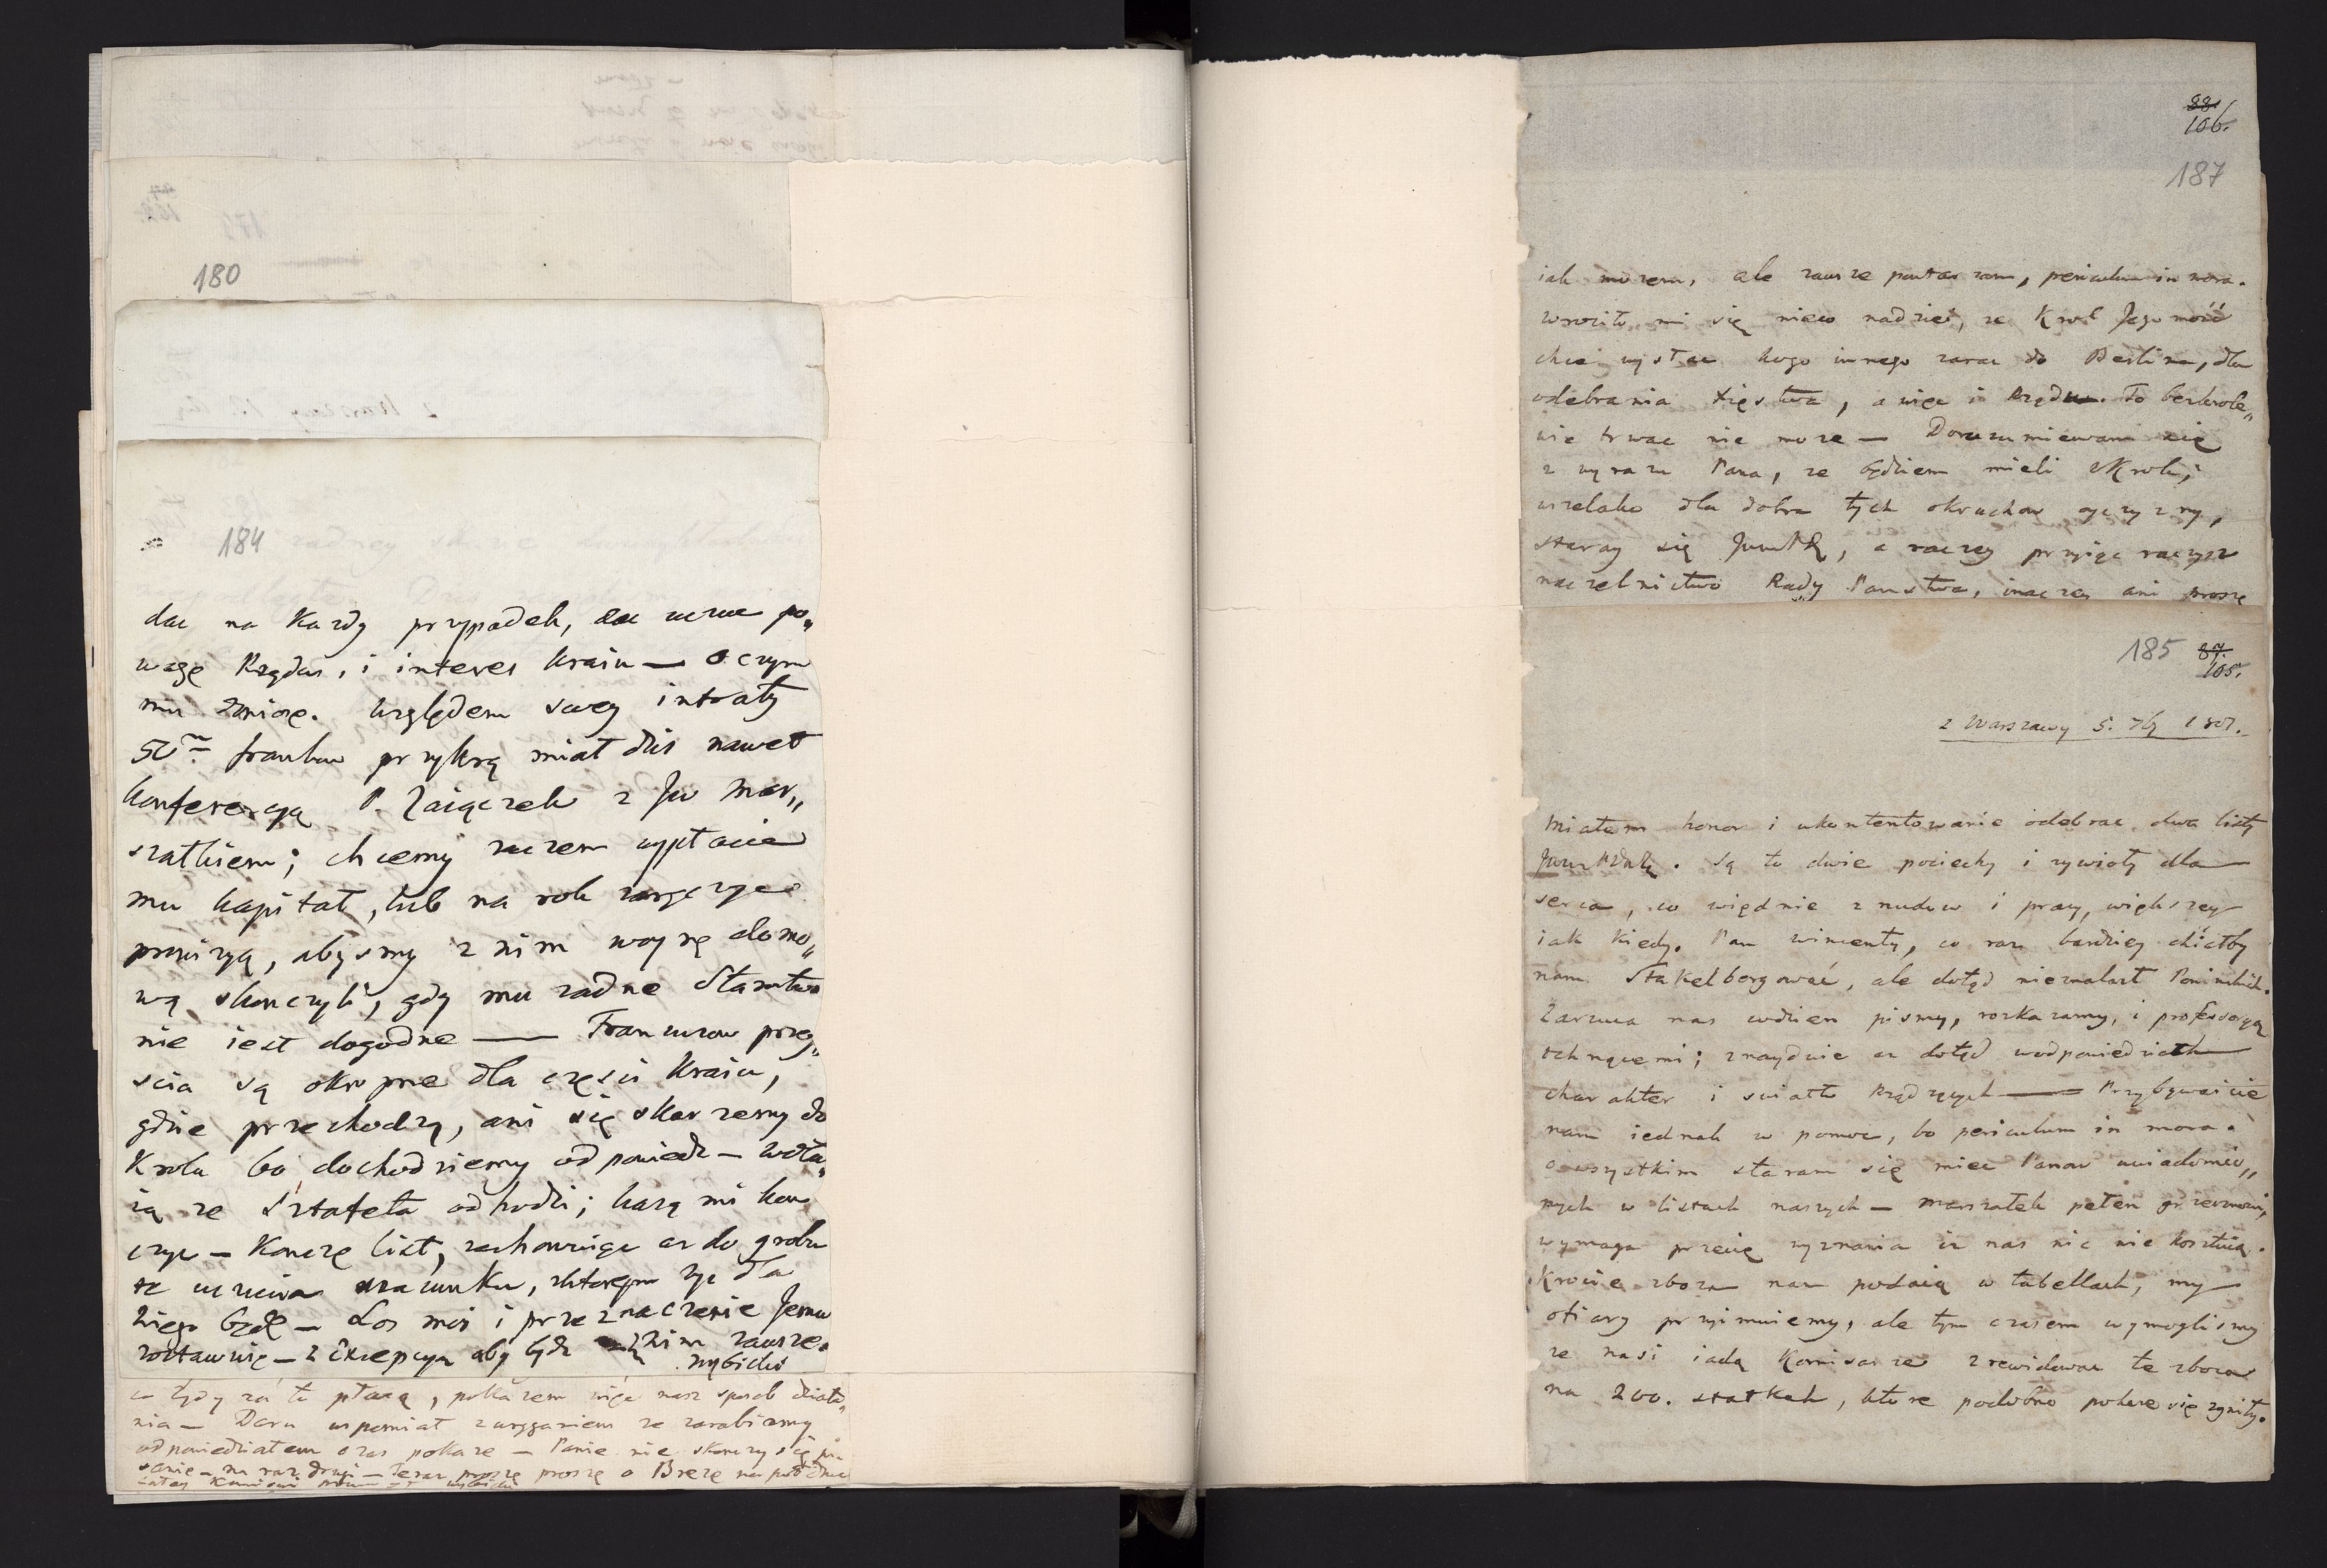 180
184
dac na Kazdy przypadek, zac uczuc po„
wagę Rządu, i interes kraiu — o czym
mu Względem swey intraty
50m frankow przykrą miał dziś nawet
konferencyą P. Zaiączek z Jw Mar„
szałkiem; chcemy razem wypłacic
mu kapitał, lub na rok zaręczyc
prowizyą, abysmy z nim woynę domo„
wą skonczyli, gdy mu zadne Starostwo
nie iest dogodne — Francuzow przey„
scia są okropne dla częsci Kraiu,
gdzie przechodzą, ani się skarzemy do
Krola bo dochodziemy odpowiedz — woła„
ią ze Sztafeta odhodzi; każą mi kon„
czyc — Koncze list, zachowuiąc az do grobu
szacunku, ktorego zyc dla
Niego będę — Los moi i przeznaczenie Jemu
zostawuię — z Excepcyą aby bydz z Nim zawsze.
Wybicki
nia — Daru wspomiał z urąganiem ze zarabiamy
odpowiedziałem czas pokaze — Panie nie skonczy się
na raz drugi — teraz proszę proszę o Brezę
88.
106.
187
iak mozem, ale zawsze powtarzam, periculum in mora.
wrociło mi się nieco nadziei, ze Krol Jegomość
chce wysłac kogo innego zaraz do Berlina, dla
odebrania Xięstwa, a więc i Rządu. To bezkrole„
wie trwac nie moze — Dorozumiewam się
z wyrazu Pana, ze będziem mieli vKrola;
wszelako dla dobra tych okruchow oyczyzny,
staray się JWWPD, a raczey przyiąc raczysz
naczelnictwo Rady Panstwa, inaczey ani proszę
185
87.
105.
z Warszawy 5. 7bʒ 1807.
Miałem honor i ukontentowanie odebrac dwa listy
. Są to dwie pociechy i zywioły dla
serca, co więdnie z nudow i pracy, większey
iak kiedy. Pan Wincenty, co raz bardziey chciałby
nam Stakelbergować, ale dotąd nieznalazł Poninskich.
Zarzuca nas codzien pismy, rozkazamy, i professoryą
tchnącemi; znayduie az dotąd w odpowiedziach
charakter i swiatło Rządzących — Przybywaicie
nam iednak w pomoc, bo periculum in mora.
o wszystkim staram się miec Panow uwiadomio„
nych w listach naszych — Marszałek pełen grzecznosci,
wymaga przecię wyznania iz nas nic nie kosztuią.
Krocie zboza nam podaią w tabellach, my
ofiary przyimuiemy, ale tym czasem wymoglismy
ze nasi iadą Komisarze zrewidowac te zboza
na 200. statkach, ktore podobno pokaże się zgniły.